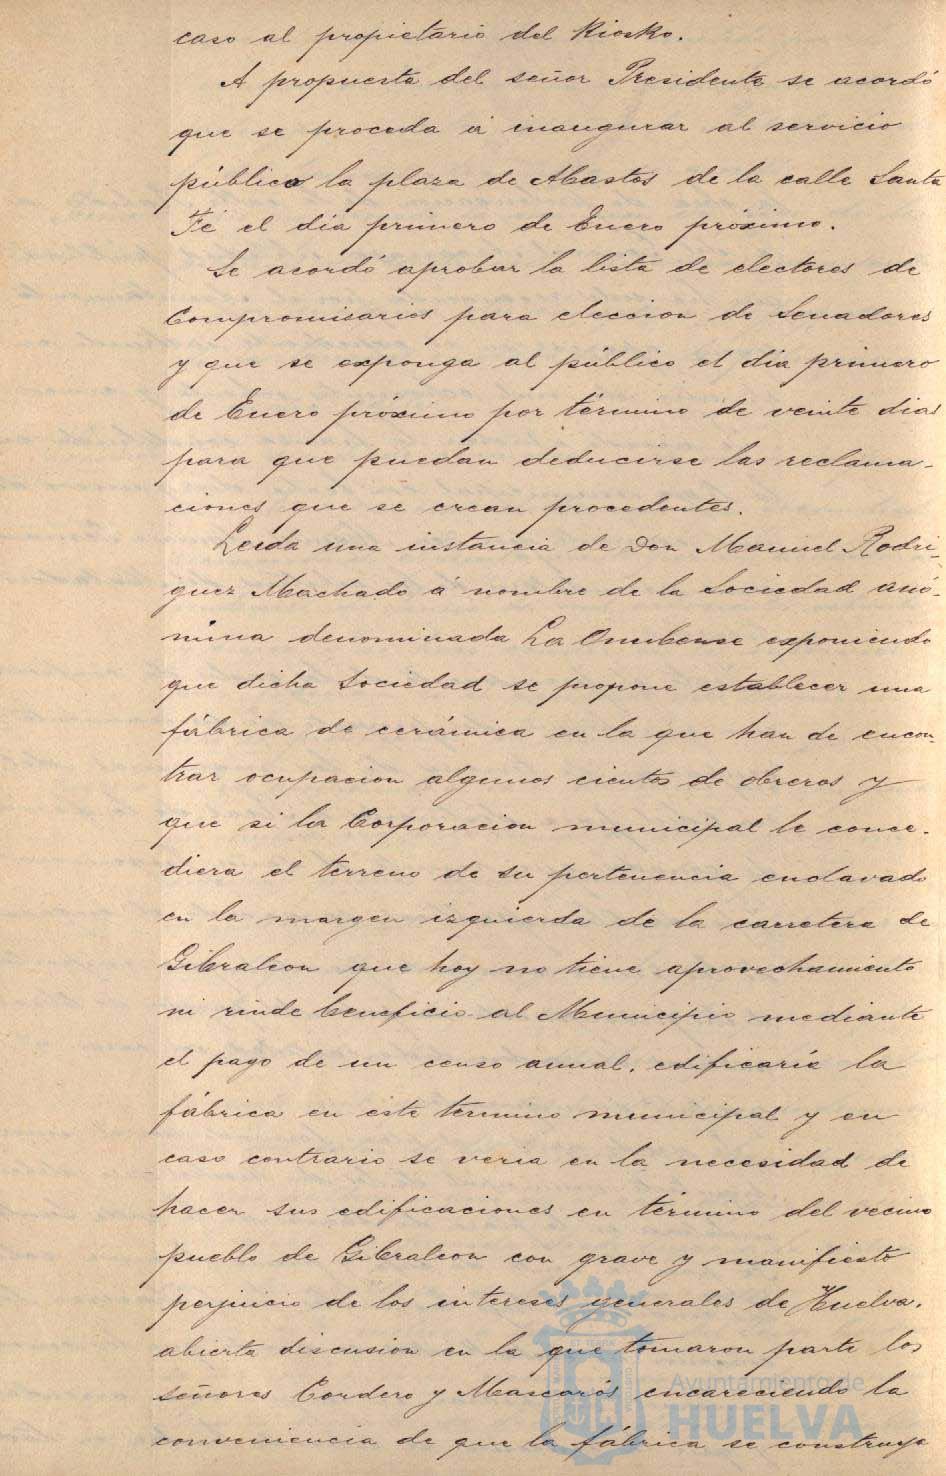 caso al propietario del Kiosko.
A propuesta del señor Presidente se acordó
que se proceda á inaugurar al servicio
público la plaza de Abastos de la calle Santa
Fé el dia primero de Enero próximo.
Se acordó aprobar la lista de electores de
Compromisarios para eleccion de Senadores
y que se exponga al público el dia primero
de Enero próximo por término de veinte dias
para que puedan deducirse las reclama-
ciones que se crean procedentes.
Leida una instancia de Don Manuel Rodri-
guez Machado á nombre de la Sociedad anó-
nima denominada La Onubense exponiendo
que dicha Sociedad se propone establecer una
fábrica de cerámica en la que han de encon-
trar ocupacion algunos cientos de obreros y
que si la Corporacion municipal le conce-
diera el terreno de su pertenencia enclavado
en la margen izquierda de la carretera de
Gibraleon que hoy no tiene aprovechamiento
ni rinde beneficio al Municipio mediante
el pago de un censo anual, edificaría la
fábrica en este término municipal y en
caso contrario se veria en la necesidad de
hacer sus edificaciones en término del vecino
pueblo de Gibraleon con grave y manifiesto
perjuicio de los intereses generales de Huelva.
abierta discusion en la que tomaron parte los
señores Cordero y Mascarós encareciendo la
conveniencia de que la fábrica se construya
Ayuntamiento de
HUELVA